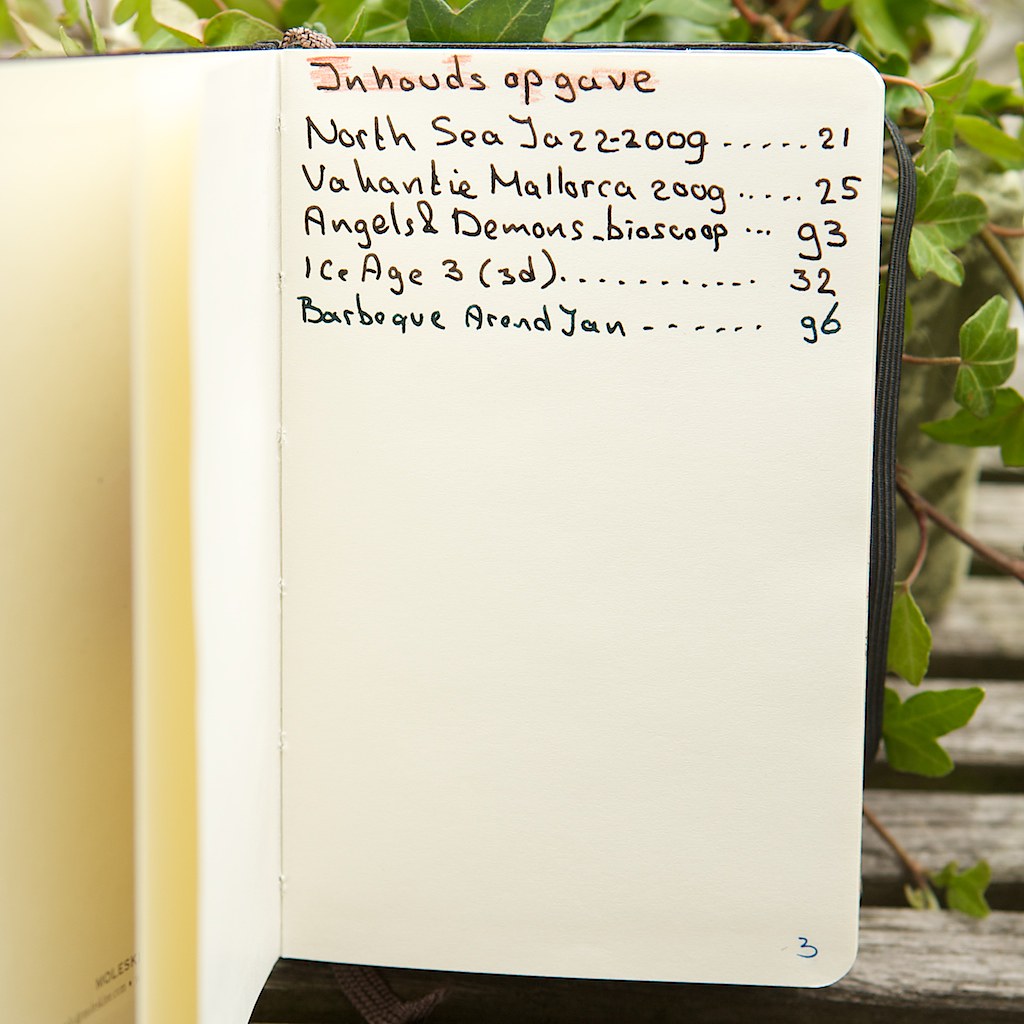 Inhouds opgave
North Sea Jazz-2009 ...... 21
Vakantie Mallorca 2009 ..... 25
Angels & Demons - bioscoop ... 93
Ice Age 3 (3d)............ 32
Barbeque Arend Jan ------- 96
3
MOLESK